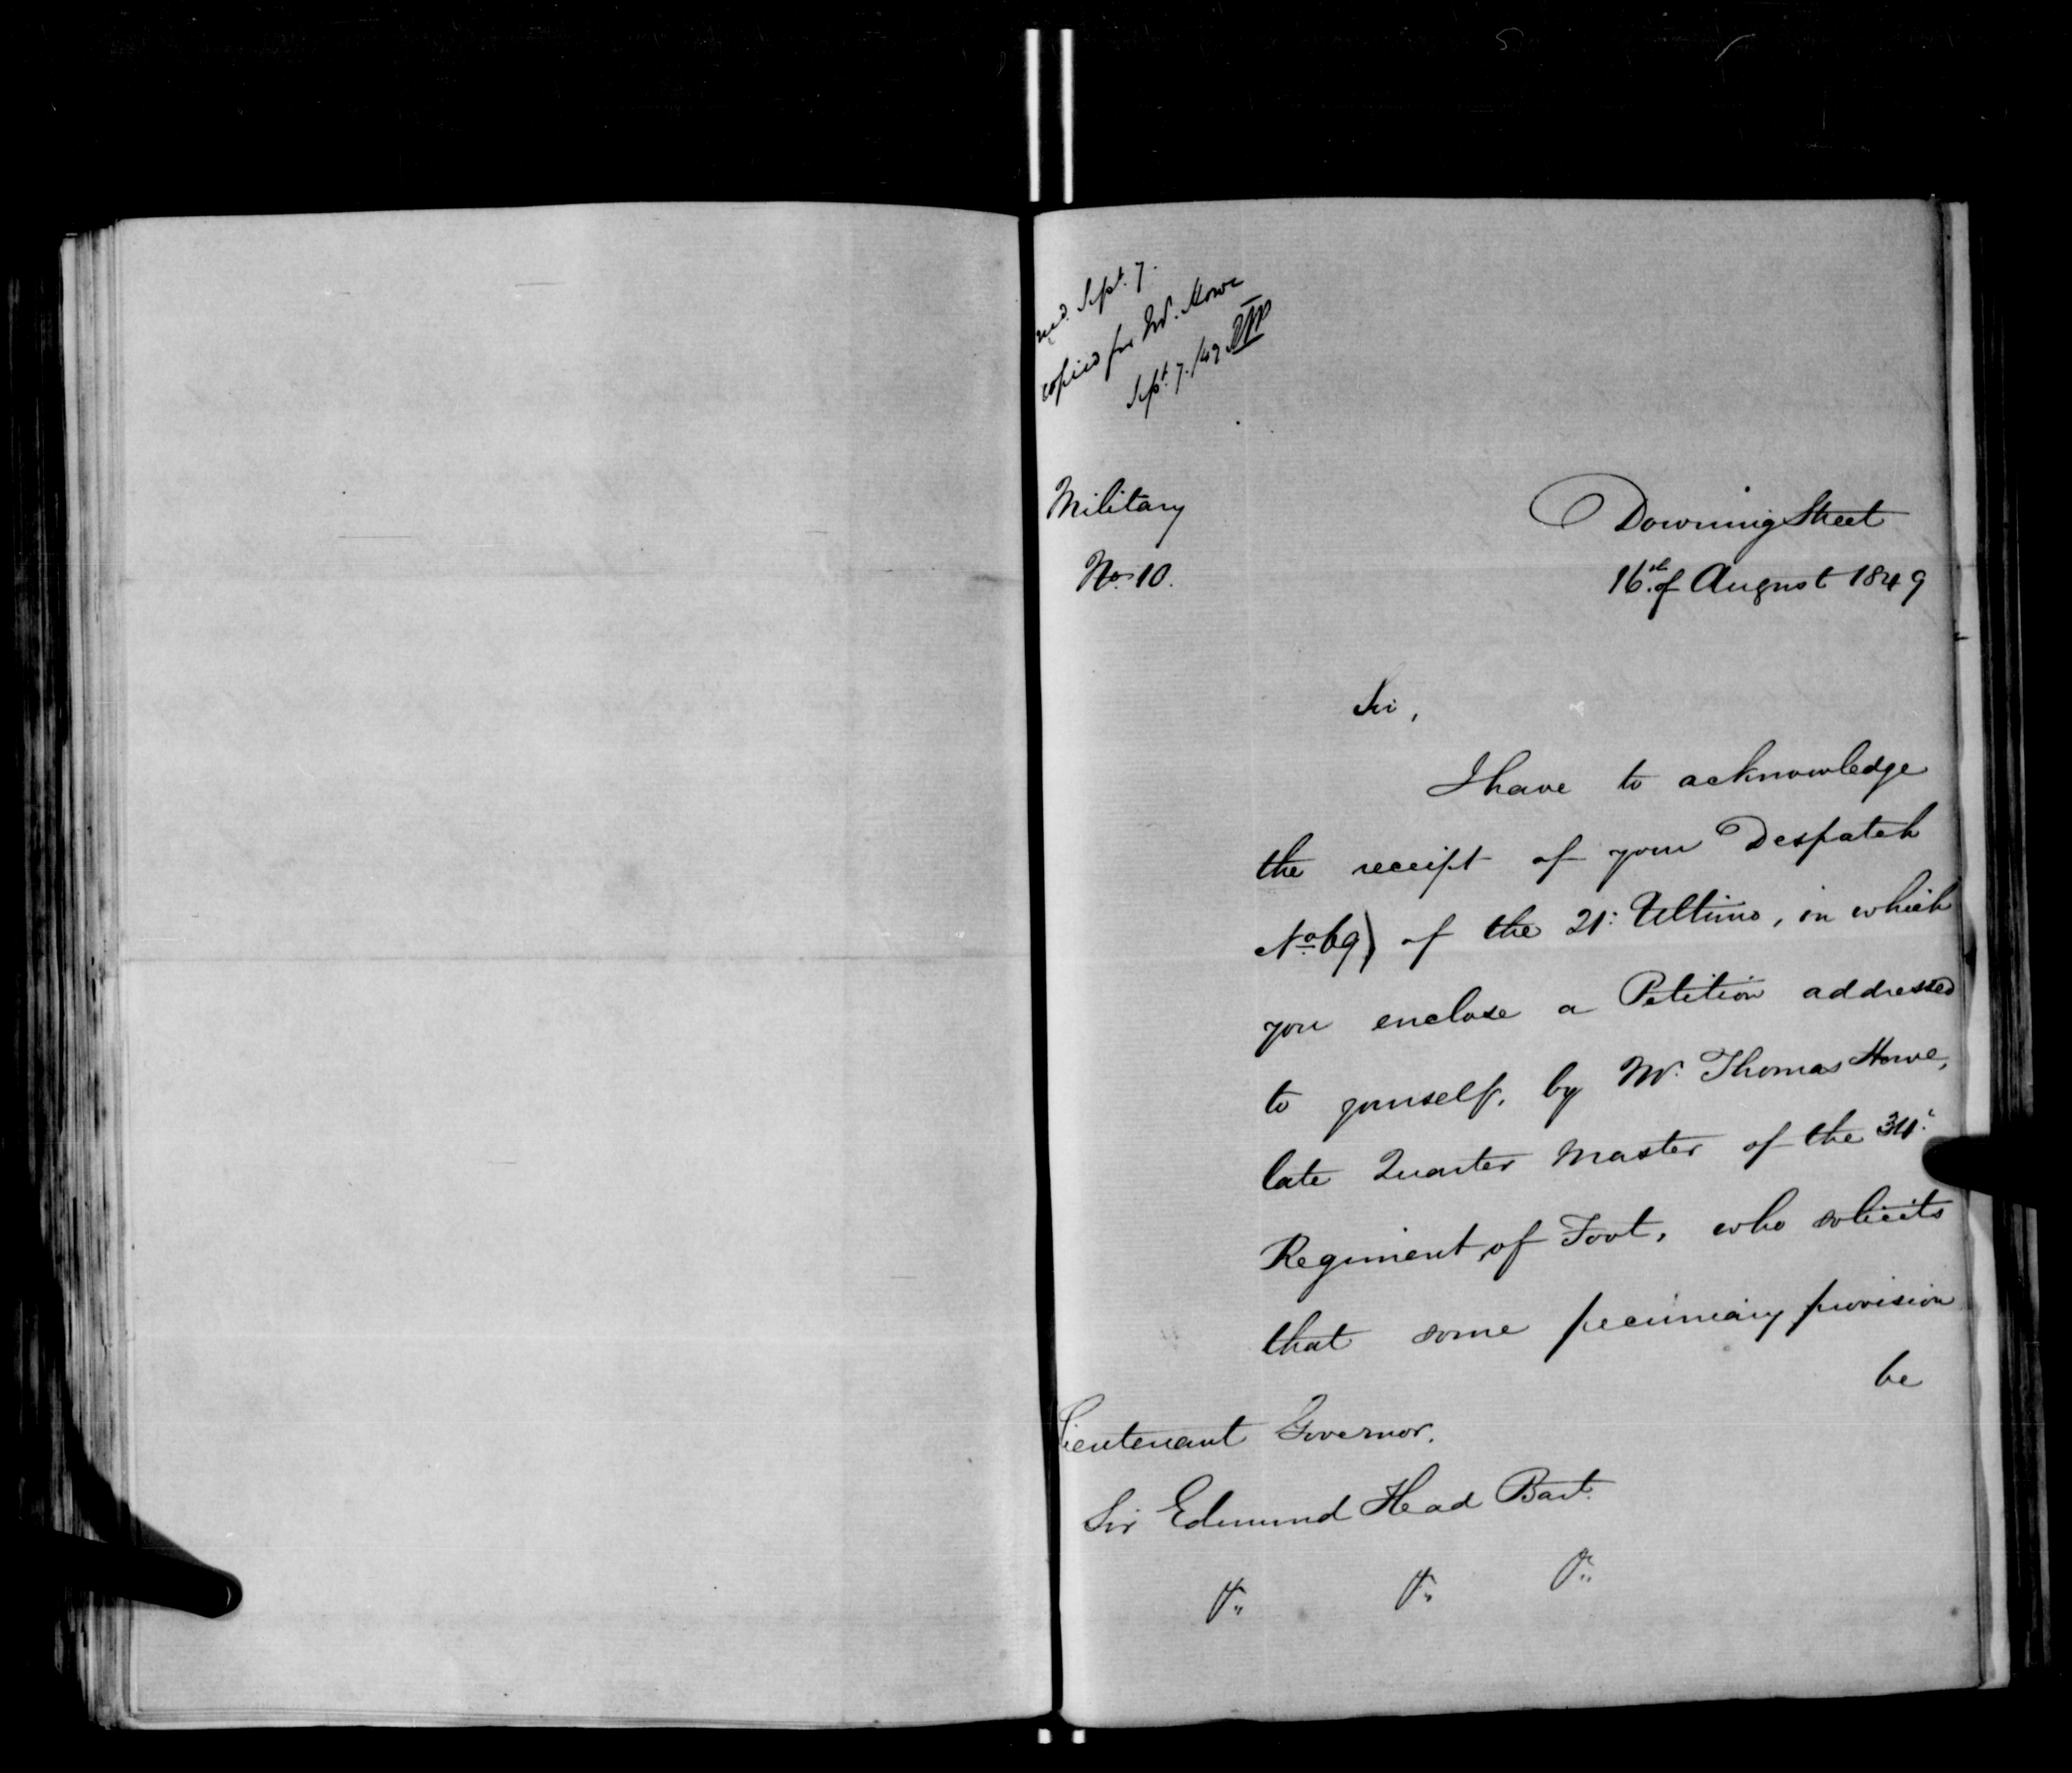 recd. Sept. 7.
copied for Mr. Howe
Sept. 7./49
Military
No. 10.
Downing Street
16th of August 1849
Sir,
I have to acknowledge
the receipt of your Despatch
No. 69) of the 21: Ultimo, in which
you enclose a Petition addressed
to yourself, by Mr. Thomas Howe,
late Quarter Master of the 34:
Regiment of Foot, who solicits
that some pecuniary provision
be
Lieutenant Governor.
Sir Edmund Head Bart.
&c. &c. &c.